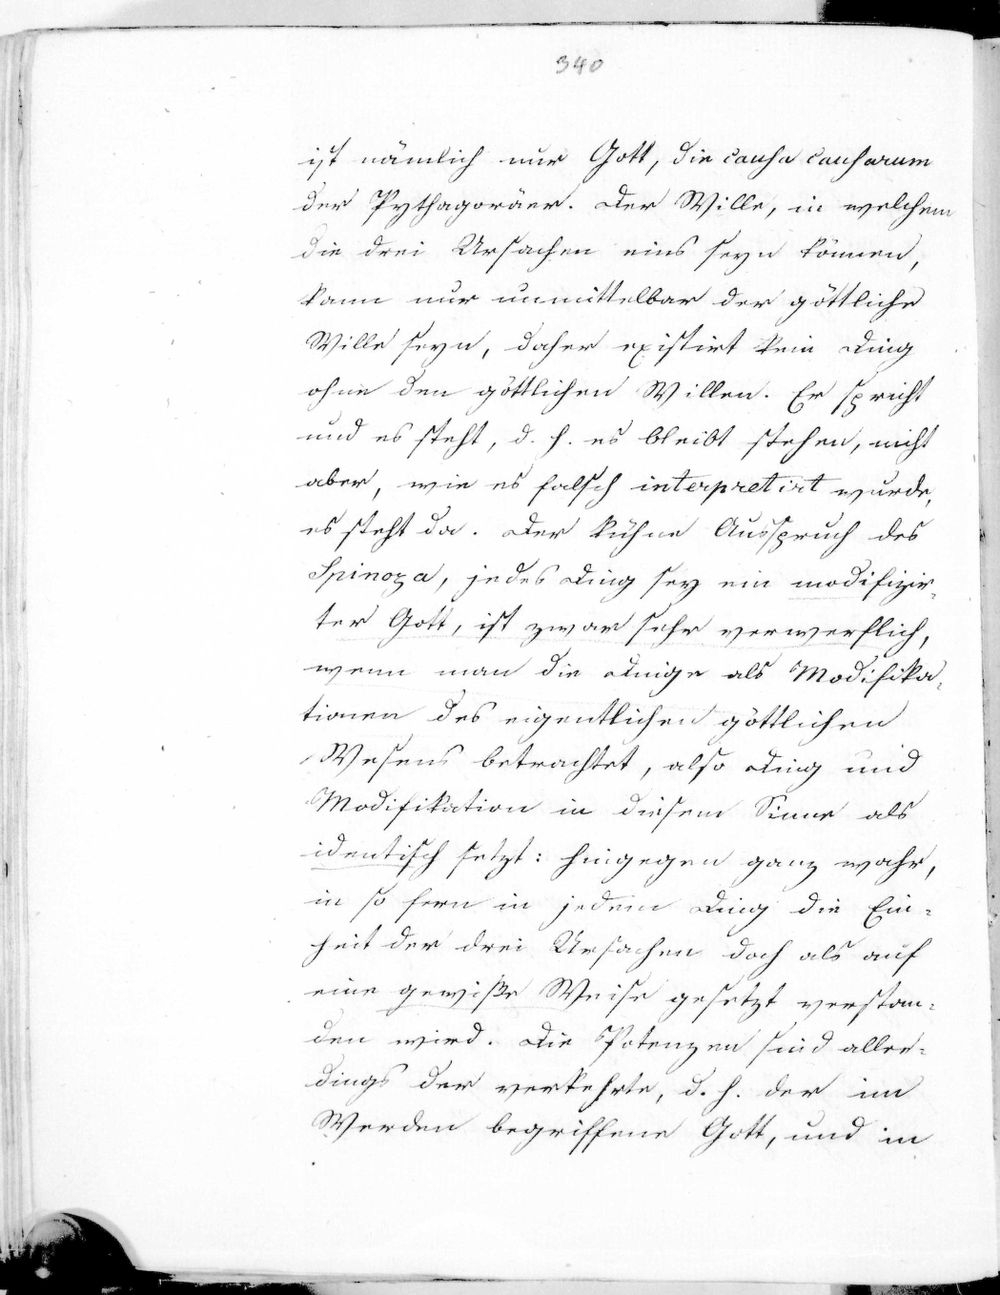 340
ist nämlich nur Gott, die causa causarum
der Pythagoräer. Der Wille, in welchem
die drei Ursachen eins seyn können,
kann nur unmittelbar der göttliche
Wille seyn, daher existirt kein Ding
ohne den göttlichen Willen. Er spricht
und es steht, d. h. es bleibt stehen, nicht
aber, wie es falsch interpretirt wurde,
es steht da. Der kühne Ausspruch des
Spinoza, jedes Ding sey ein modifizir-
ter Gott, ist zwar sehr verwerflich,
wenn man die Dinge als Modifika-
tionen des eigentlichen göttlichen
Wesens betrachtet, also Ding und
Modifikation in diesem Sinne als
identisch setzt: hingegen ganz wahr,
in so fern in jedem Ding die Ein-
heit der drei Ursachen doch als auf
eine gewiße Weise gesetzt verstan-
den wird. Die Potenzen sind aller-
dings der verkehrte, d. h. der im
Werden begriffene Gott, und in